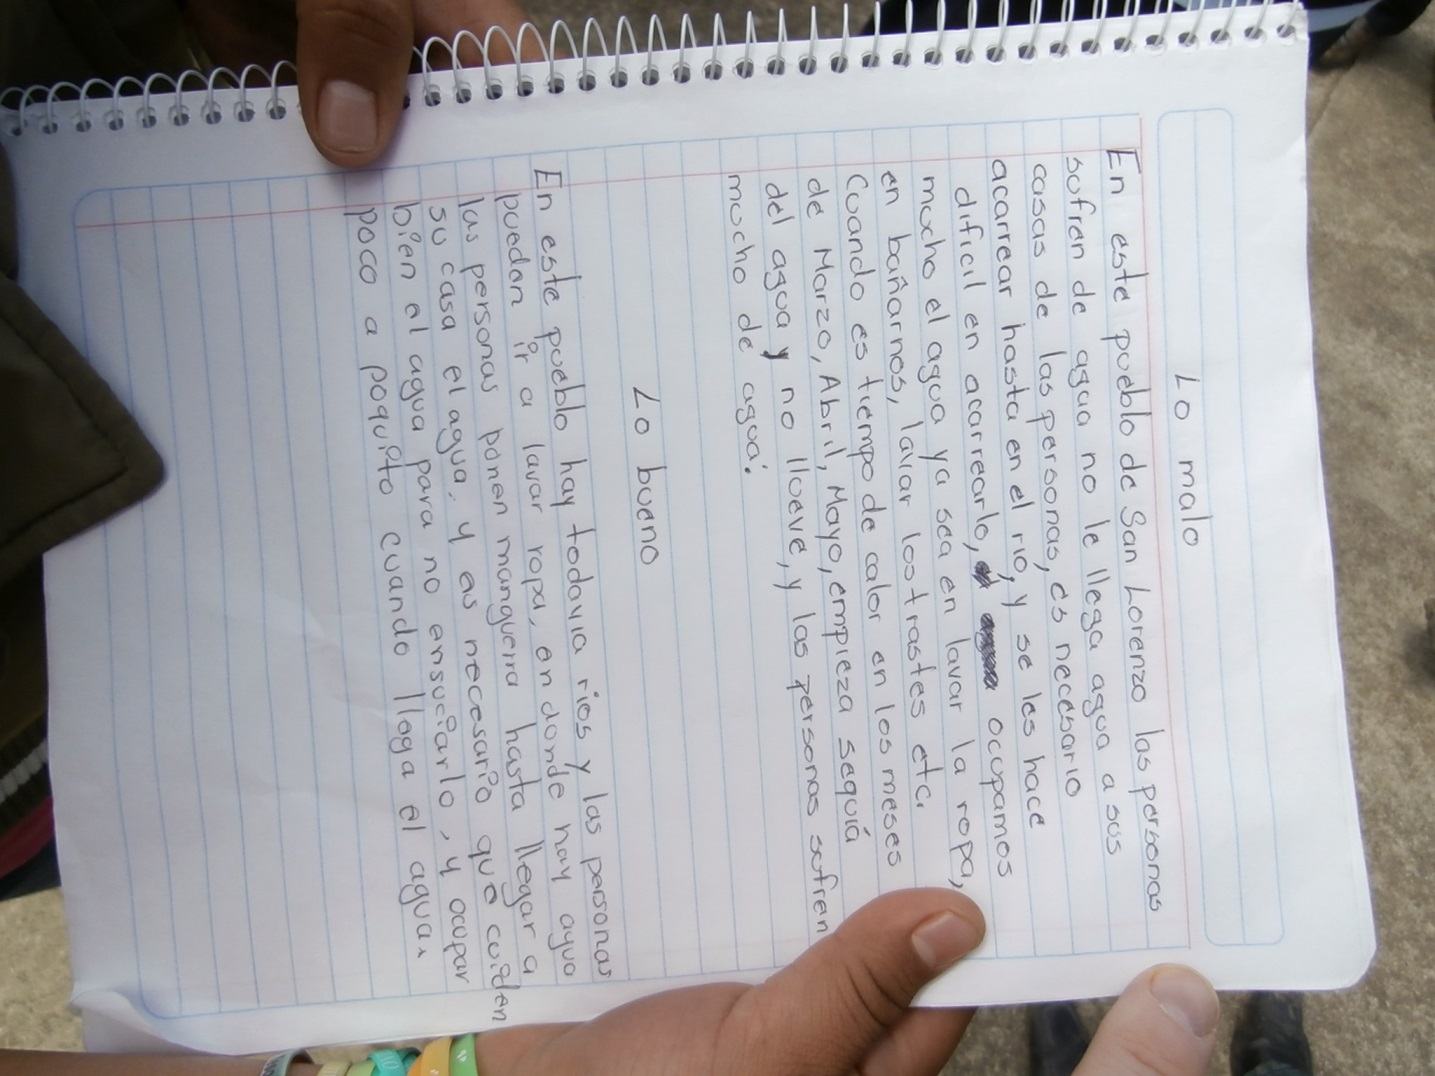 Lo malo
En este pueblo de San Lorenzo las personas
sufren de agua no le llega agua a sus
casas de las personas, es necesario
acarrear hasta en el rio, y se les hace
dificil en acarrearlo, ocupamos
mucho el agua ya sea en lavar la ropa,
en bañarnos, lavar los trastes etc.
Cuando es tiempo de calor en los meses
de Marzo, Abril, Mayo, empieza sequiá
del agua y no llueve, y las personas sufren
mucho de agua.
Lo bueno
En este pueblo hay todavia rios y las personas
pueden ir a lavar ropa, en donde hay agua
las personas ponen manguerra hasta llegar a
su casa el agua, y es necesario que cuiden
bien el agua para no ensuciarlo, y ocupar
poco a poquito cuando llega el agua.